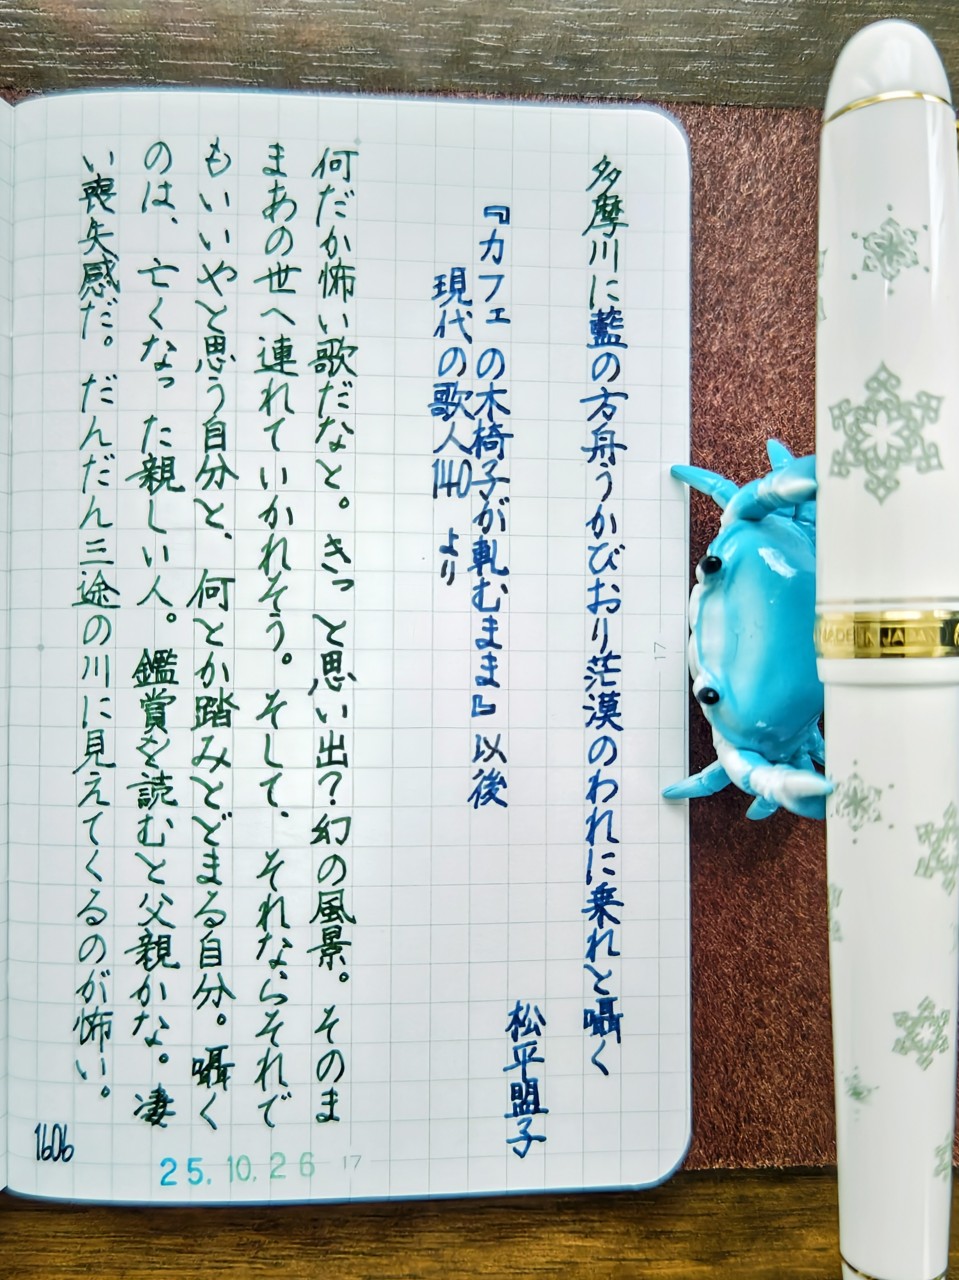 多摩川に藍の方舟うかびおり茫漠のわれに乗れと囁く
松平盟子
『カフェの木椅子が軋むまま』以後
現代の歌人140 より
何だか怖い歌だなと。きっと思い出?幻の風景。そのま
まあの世へ連れていかれそう。そして、それならそれで
もいいやと思う自分と、何とか踏みとどまる自分。囁く
のは、亡くなった親しい人。鑑賞を読むと父親かな。凄
い喪失感だ。だんだん三途の川に見えてくるのが怖い。
1606
25.10.26
17
17
MADE IN JAPAN